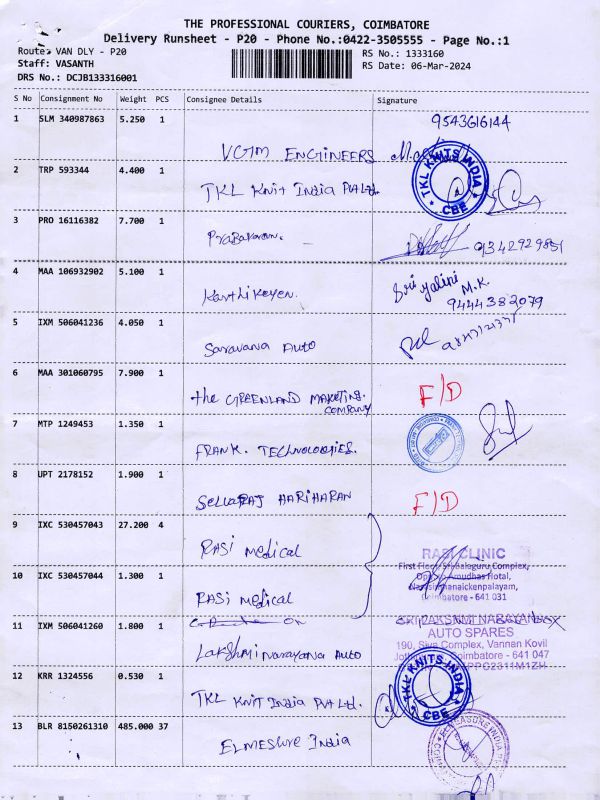 THE PROFESSIONAL COURIERS, COIMBATORE
Delivery Runsheet - P20 - Phone No.:0422-3505555 - Page No.:1
Route: VAN DLY - P20
RS No.: 1333160
Staff: VASANTH
RS Date: 06-Mar-2024
DRS No.: DCJB133316001
S No Consignment No Weight PCS Consignee Details Signature
1 SLM 340987863 5.250 1
9543616144
VGM ENGINEERS
2 TRP 593344 4.400 1
TKL KNITS INDIA
CBE
TKL Knit India Pvt Ltd.
3 PRO 16116382 7.700 1
Prabakaran. 9342929851
4 MAA 106932902 5.100 1
Karthikeyen.
Sri yalini
M.K.
9444382079
5 IXM 506041236 4.050 1
Saravana Auto
6 MAA 301060795 7.900 1
F/D
the GREENLAND MARKETING.
COMPANY
7 MTP 1249453 1.350 1
FRANK. TECHNOLOGIES.
8 UPT 2178152 1.900 1
SELLARAJ HARIHARAN
F/D
9 IXC 530457043 27.200 4
RASI medical
RASI CLINIC
First Floor, Sribalaguru Complex,
Opp. Amudhas Hotal,
Narasimhanaickenpalayam,
Coimbatore - 641 031
10 IXC 530457044 1.300 1
RASI medical
11 IXM 506041260 1.800 1
SRI LAKSHMI NARAYANA
AUTO SPARES
190, Siva Complex, Vannan Kovil
Coimbatore - 641 047
Lakshmi Narayana Auto
12 KRR 1324556 0.530 1
TKL KNITS INDIA
CBE
TKL Knit India Pvt Ltd.
13 BLR 8150261310 485.000 37
ELMESURE India